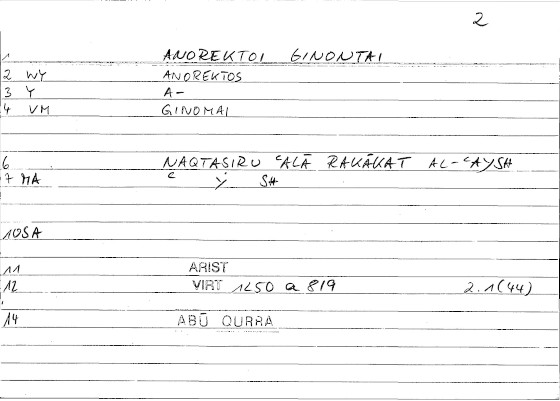 2
1 ANOREKTOI GINONTAI
2 WY ANOREKTOS
3 Y A-
4 VM GINOMAI
6 NAQTASIRU ʿALĀ RAKĀKAT AL-ʿAYSH
7 MA ʿ Y SH
10SA
11 ARIST
12 VIRT 1250 a 8/9 2.1(44)
14 ABŪ QURRA